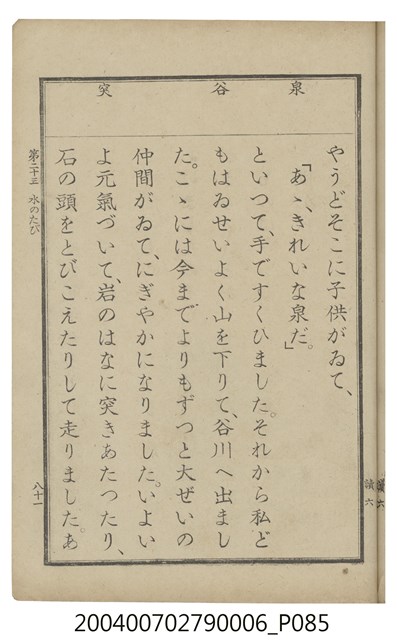 泉　谷　突
やうどそこに子供がゐて、
「あゝ、きれいな泉だ。」
といつて、手ですくひました。それから私ど
もはゐせいよく山を下りて、谷川へ出まし
た。こゝには今までよりもずつと大ぜいの
仲間がゐて、にぎやかになりました。いよい
よ元氣づいて、岩のはなに突きあたつたり、
石の頭をとびこえたりして走りました。あ
第二十三　水のたび
八十一
讀六
200400702790006_P085